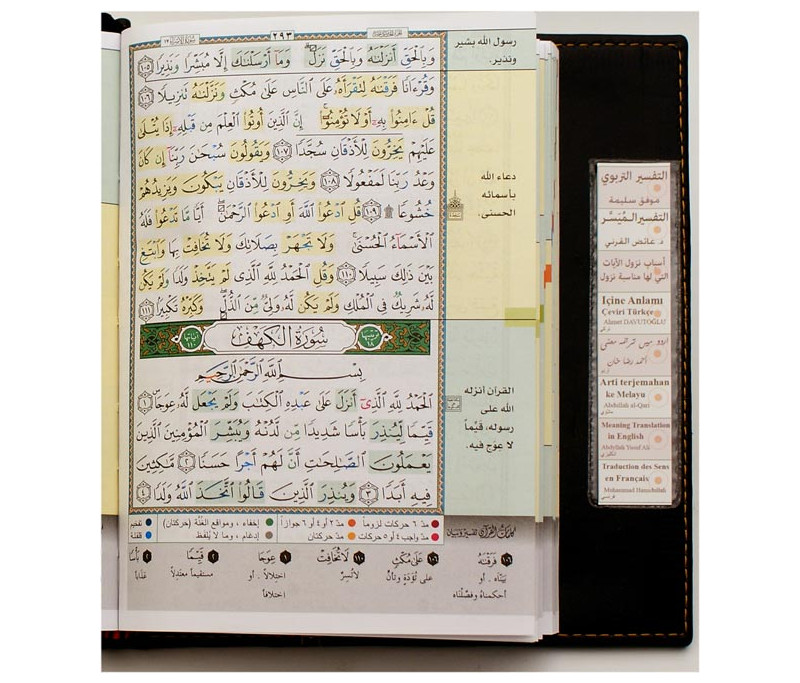 سورة الإسراء ١٧
٢٩٣
وَبِالْحَقِّ أَنزَلْنَٰهُ وَبِالْحَقِّ نَزَلَ ۗ وَمَا أَرْسَلْنَٰكَ إِلَّا مُبَشِّرًا وَنَذِيرًا ١٠٥
وَقُرْءَانًا فَرَقْنَٰهُ لِتَقْرَأَهُۥ عَلَى النَّاسِ عَلَىٰ مُكْثٍ وَنَزَّلْنَٰهُ تَنزِيلًا ١٠٦
قُلْ ءَامِنُوا بِهِۦٓ أَوْ لَا تُؤْمِنُوٓا ۚ إِنَّ الَّذِينَ أُوتُوا الْعِلْمَ مِن قَبْلِهِۦٓ إِذَا يُتْلَىٰ
عَلَيْهِمْ يَخِرُّونَ لِلْأَذْقَانِ سُجَّدًا ١٠٧ وَيَقُولُونَ سُبْحَٰنَ رَبِّنَآ إِن كَانَ
وَعْدُ رَبِّنَا لَمَفْعُولًا ١٠٨ وَيَخِرُّونَ لِلْأَذْقَانِ يَبْكُونَ وَيَزِيدُهُمْ
خُشُوعًا ۩ ١٠٩ قُلِ ادْعُوا اللَّهَ أَوِ ادْعُوا الرَّحْمَٰنَ ۖ أَيًّا مَّا تَدْعُوا فَلَهُ
الْأَسْمَآءُ الْحُسْنَىٰ ۚ وَلَا تَجْهَرْ بِصَلَاتِكَ وَلَا تُخَافِتْ بِهَا وَابْتَغِ
بَيْنَ ذَٰلِكَ سَبِيلًا ١١٠ وَقُلِ الْحَمْدُ لِلَّهِ الَّذِى لَمْ يَتَّخِذْ وَلَدًا وَلَمْ يَكُن
لَّهُۥ شَرِيكٌ فِى الْمُلْكِ وَلَمْ يَكُن لَّهُۥ وَلِىٌّ مِّنَ الذُّلِّ ۖ وَكَبِّرْهُ تَكْبِيرًا ١١١
ترتيبها ١٨
سُورَةُ الْكَهْفِ
آياتها ١١٠
بِسْمِ اللَّهِ الرَّحْمَٰنِ الرَّحِيمِ
الْحَمْدُ لِلَّهِ الَّذِىٓ أَنزَلَ عَلَىٰ عَبْدِهِ الْكِتَٰبَ وَلَمْ يَجْعَل لَّهُۥ عِوَجَا ١
قَيِّمًا لِّيُنذِرَ بَأْسًا شَدِيدًا مِّن لَّدُنْهُ وَيُبَشِّرَ الْمُؤْمِنِينَ الَّذِينَ
يَعْمَلُونَ الصَّٰلِحَٰتِ أَنَّ لَهُمْ أَجْرًا حَسَنًا ٢ مَّٰكِثِينَ
فِيهِ أَبَدًا ٣ وَيُنذِرَ الَّذِينَ قَالُوا اتَّخَذَ اللَّهُ وَلَدًا ٤
رسول الله بشير
ونذير.
دعاء الله
بأسمائه
الحسنى.
القرآن أنزله
الله على
رسوله، قيِّماً
لا عوج فيه.
مدّ ٦ حركات لزوماً مدّ ٢ أو ٤ أو ٦ جوازاً إخفاء، ومواقع الغُنَّة (حركتان) تفخيم
مدّ واجب ٤ أو ٥ حركات مدّ حركتان إدغام، وما لا يُلفظ قلقلة
كلمات القرآن تفسير وبيان
١٠٦ فَرَقْنَٰهُ
بيّنّاه. أو
أحكمناه وفصّلناه
١٠٦ عَلَىٰ مُكْثٍ
على تُؤدَةٍ وتأنٍّ
١١٠ لَا تُخَافِتْ
لا تُسِرّ
١ عِوَجَا
اختلالاً. أو
اختلافاً
٢ قَيِّمًا
مستقيماً معتدلاً
٢ بَأْسًا
عذاباً
التفسير التربوي
موفق سليمة
التفسير الميسّر
د. عائض القرني
أسباب نزول الآيات
التي لها مناسبة نزول
Içine Anlamı
Çeviri Türkçe
Ahmet DAVUTOĞLU
تركي
اردو میں ترجمہ معنی
احمد رضا خان
Arti terjemahan
ke Melayu
Abdullah al-Qari
Meaning Translation
in English
Abdullah Yusuf Ali
إنكليزي
Traduction des Sens
en Français
Muhammad Hamidullah
فرنسي